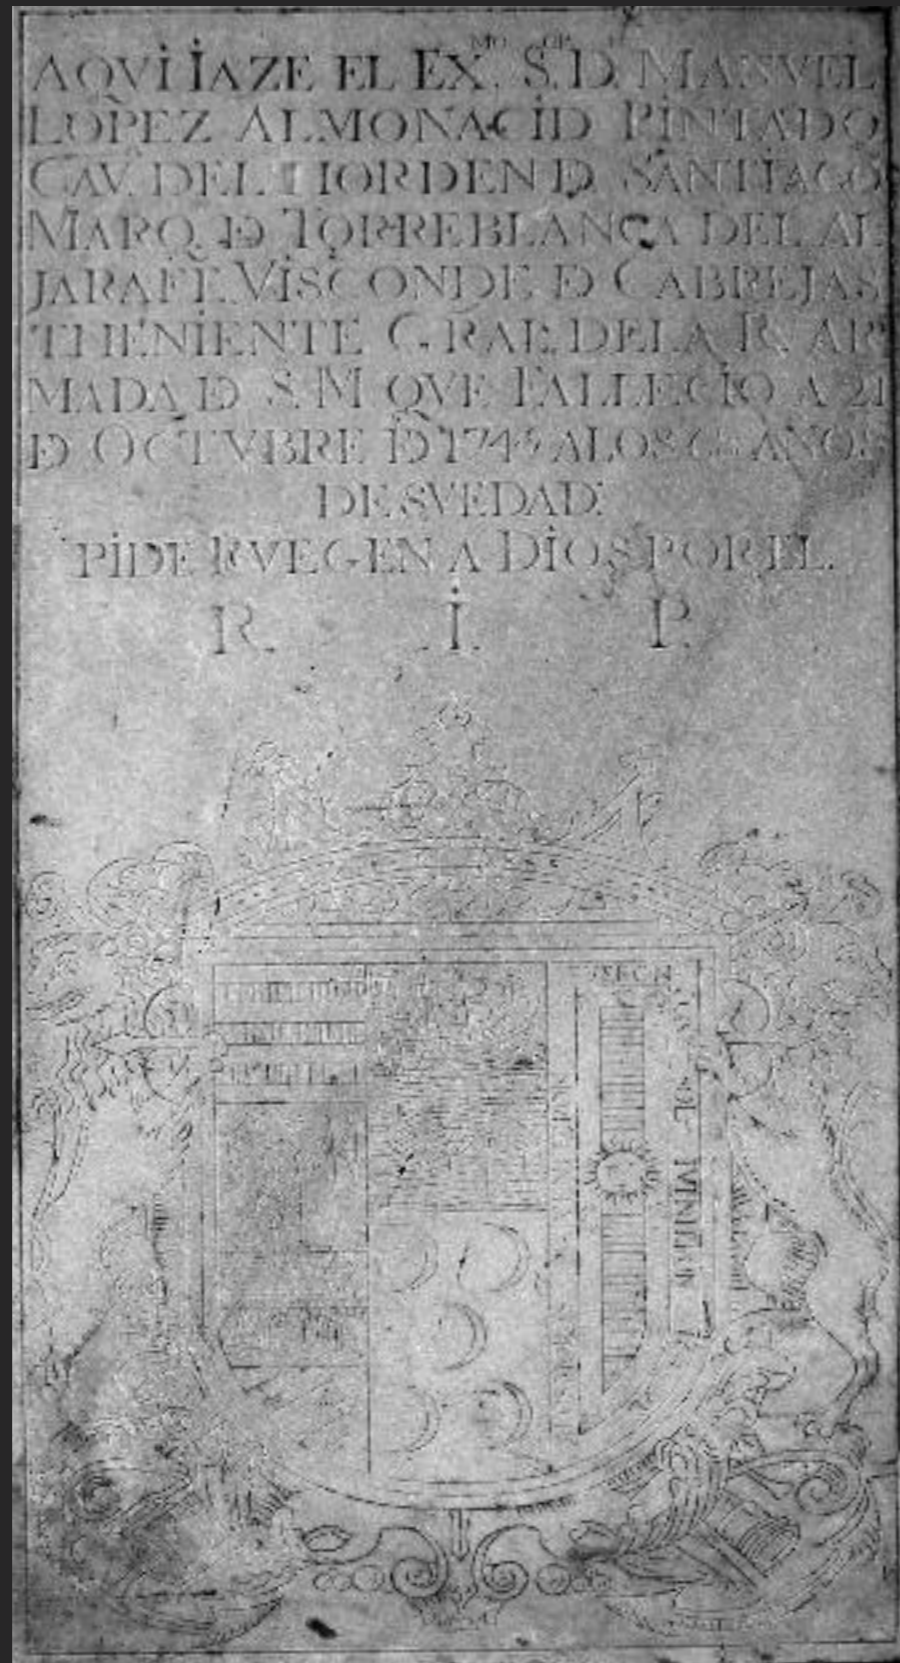 AQVI IAZE EL EXMO. SOR. D. MANVEL
LOPEZ ALMONACID PINTADO
CAV. DEL HORDEN D SANTIAGO
MARQ. D TORREBLANCA DEL AL
JARAFE VISCONDE D CABREJAS
THENIENTE GRAL. DE LA R. AR
MADA D S. M QVE FALLECIO A 21
D OCTVBRE D 1745 A LOS AÑOS
DE SV EDAD.
PIDE RVEGEN A DIOS POR EL.
R. I. P.